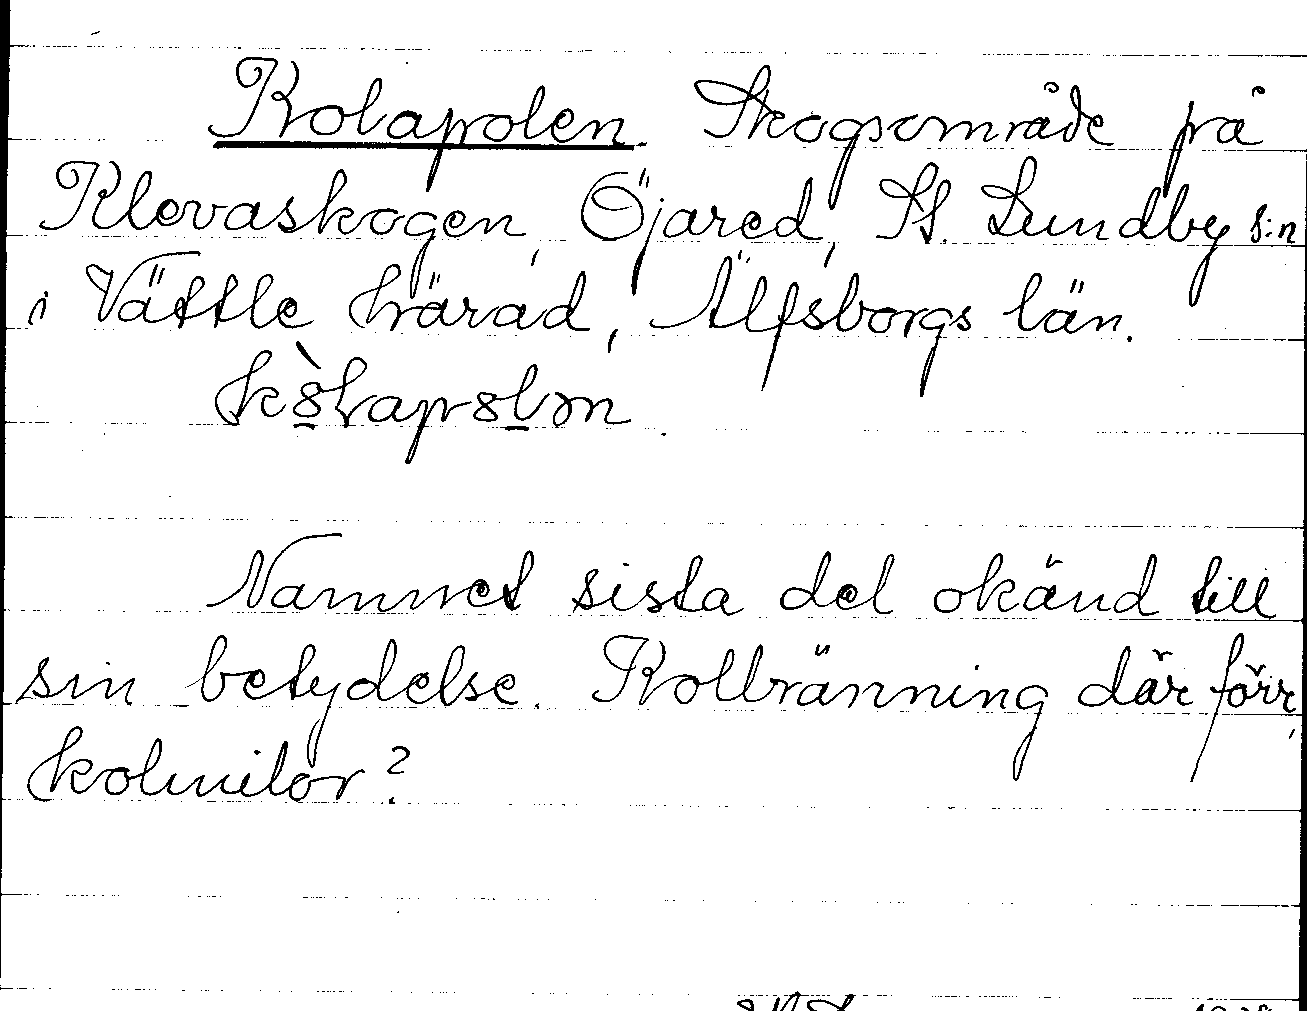 Kolapolen. Skogsområde på
Klevaskogen, Öjared, St. Lundby s:n
i Vättle härad, Älfsborgs län.
Namnet sista del okänd till
sin betydelse. Kolbränning där förr,
kolmilor?